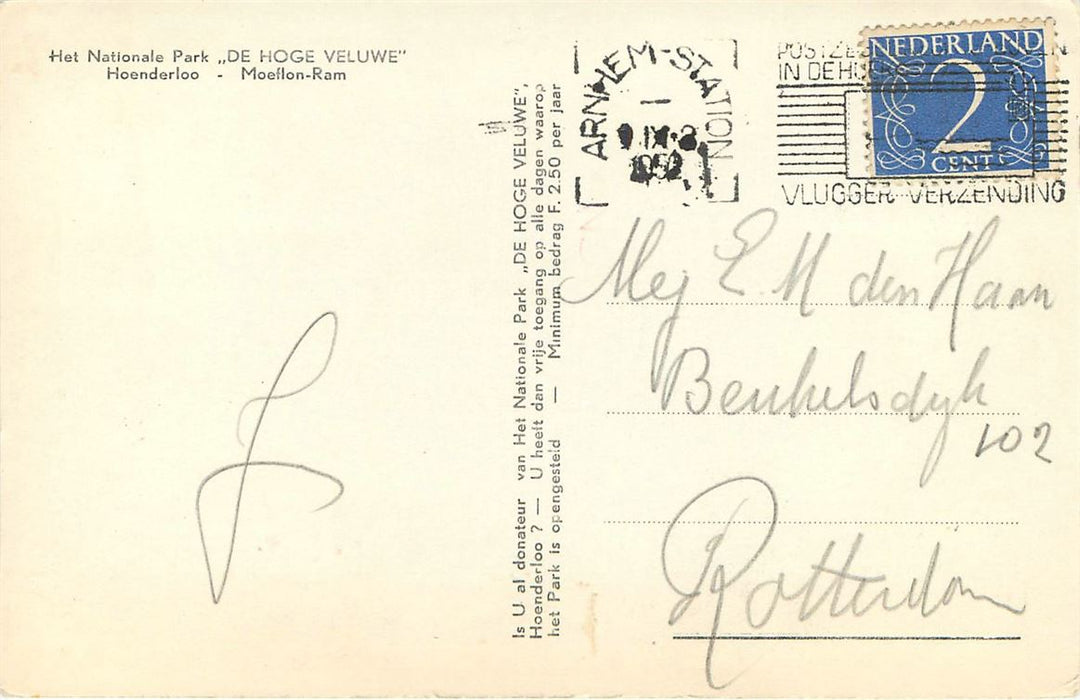 Het Nationale Park „DE HOGE VELUWE"
Hoenderloo - Moeflon-Ram
Is U al donateur van Het Nationale Park „DE HOGE VELUWE",
Hoenderloo ? — U heeft dan vrije toegang op alle dagen waarop
het Park is opengesteld — Minimum bedrag F. 2.50 per jaar
ARNHEM-STATION
IN DE HOEK
VLUGGER VERZENDING
NEDERLAND
2
CENT
Mej E M den Haan
Beukelsdijk
102
Rotterdam